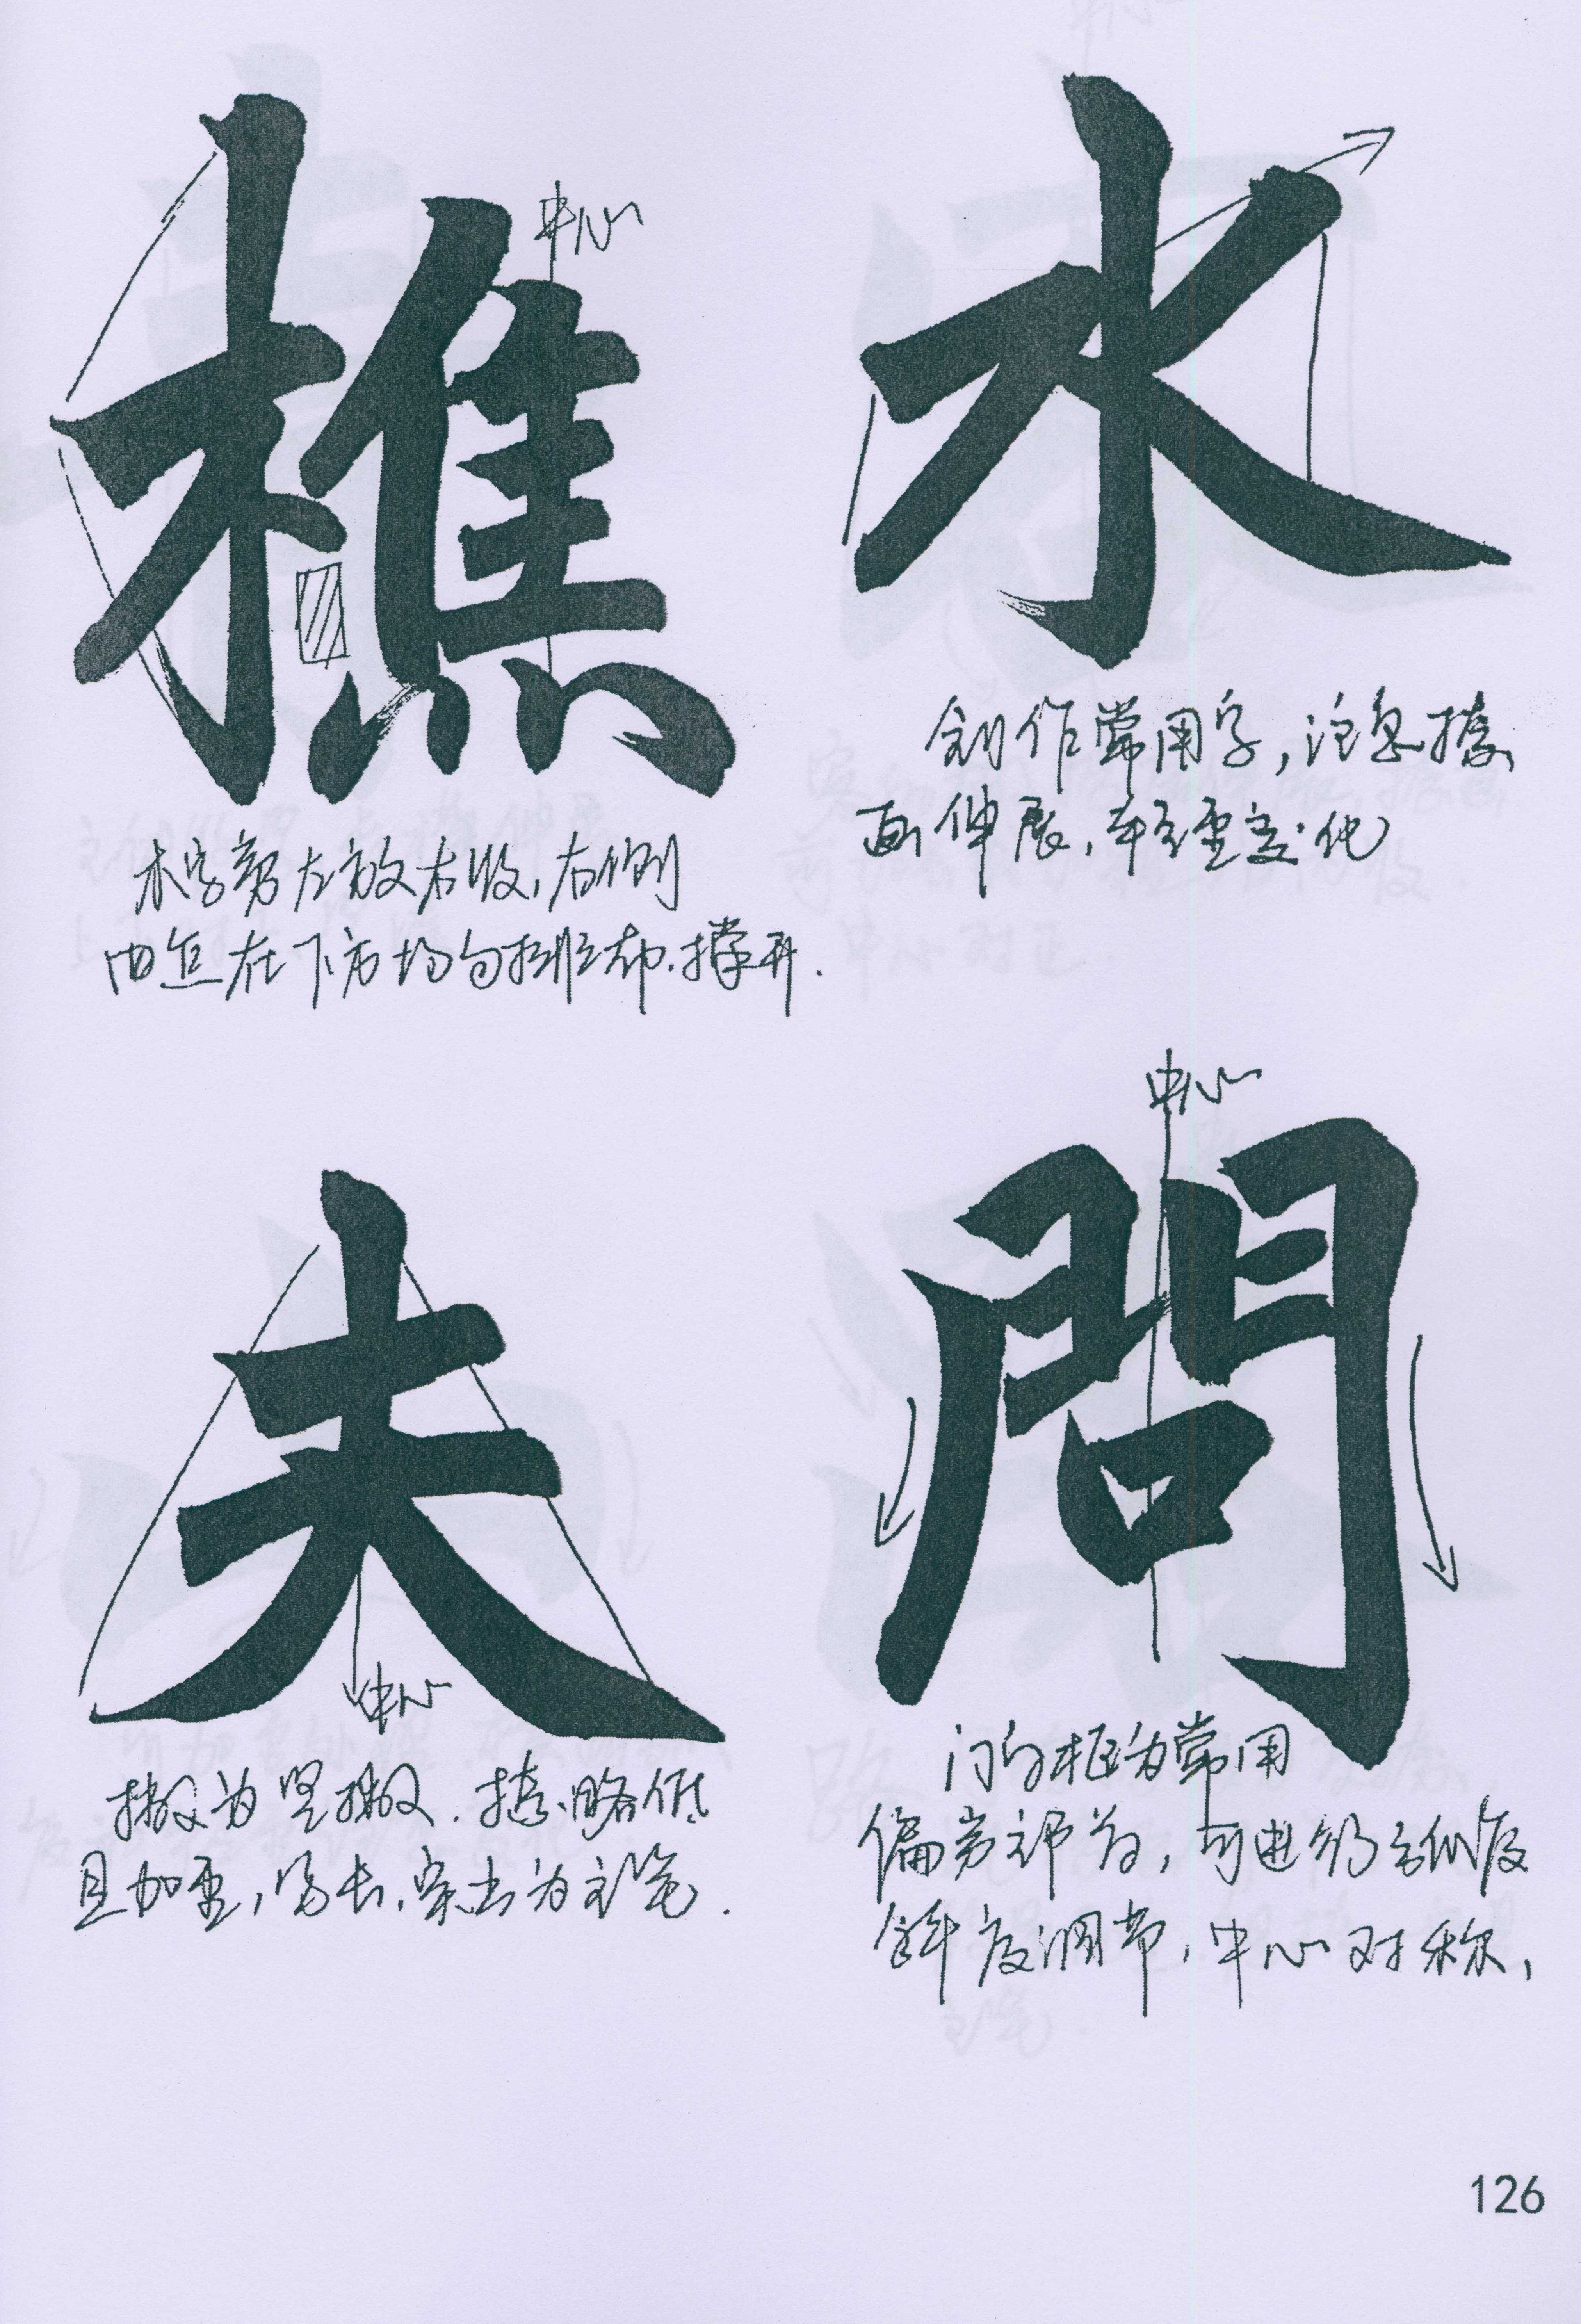 樵
中心
木字旁左放右收,右侧
四点在下方均匀排布.撑开.
水
创作常用字,注意捺
画伸展,轻重变化
夫
中心
撇为竖撇.捺略低
且加重,写长.突出为主笔.
問
中心
门字框为常用
偏旁部首,可进行弧度
斜度调节,中心对称,
126